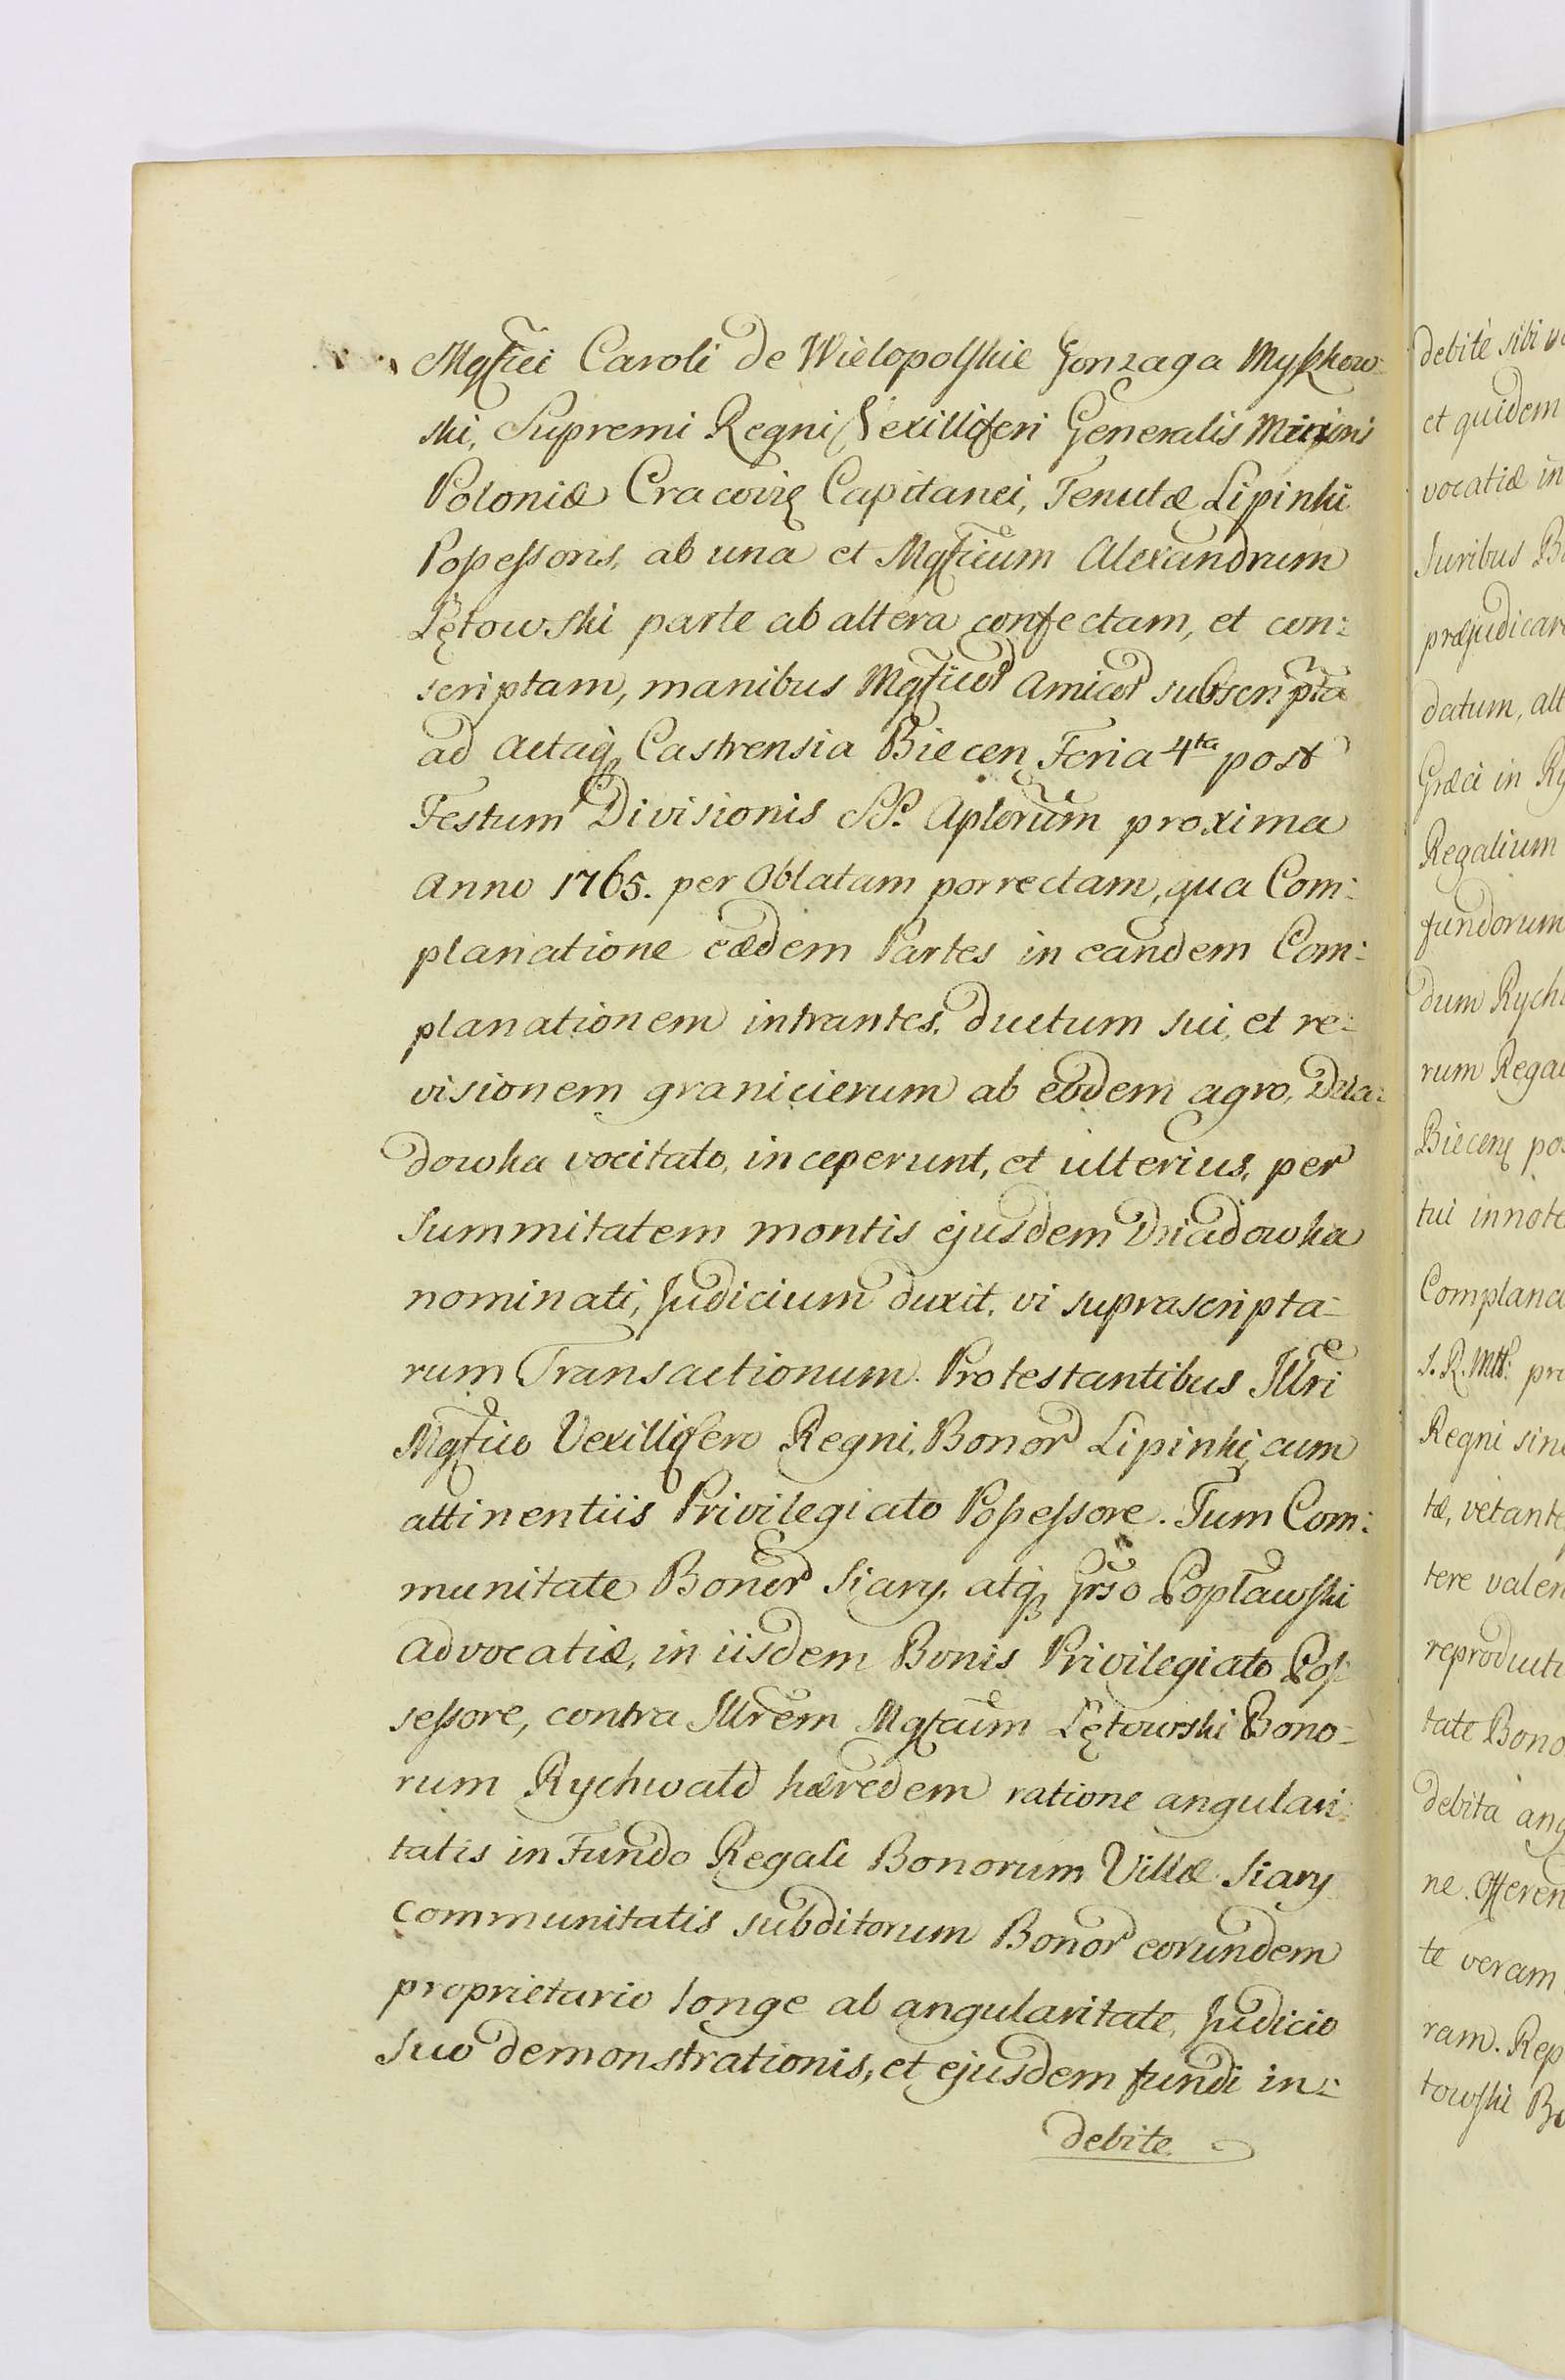 Mgficei Caroli de Wielopolskie Gonzaga Myszkow:
ski, Supremi Regni Vexilliferi Generalis Minoris
Poloniæ Cracovię Capitanei, Tenutæ Lipinki
Possessoris, ab una et Mgficum Alexandrum
Lętowski parte ab altera confectam, et con:
scriptam, manibus Mgficor Amicor subscripta
ad Actaq Castrensia Biecen Feria 4ta post
Festum Divisionis SS. Aplorum proxima
Anno 1765. per Oblatam porrectam, qua Com:
planatione eædem Partes in eandem Com:
planationem intrantes, ductum sui, et re:
visionem granicierum ab eodem agro,
dowka vocitato, inceperunt, et ulterius, per
Summitatem montis ejusdem Dziadowka
nominati, Judicium duxit, vi suprascripta-
rum Transactionum. Protestantibus Illri
Mgfico Vexillifero Regni, Bonor Lipinki cum
attinentiis Privilegiato Possessore. Tum Com:
munitate Bonor Siary, atq Grso Popławski
Advocatiæ, in iisdem Bonis Privilegiato Pos
sessore, contra Illrem Mgfcum Lętowski Bono-
rum Rychwald hæredem ratione angulari:
tatis in Fundo Regali Bonorum Villæ Siary
Communitatis subditorum Bonor eorundem
proprietario longe ab angularitate, Judicio
Suo demonstrationis, et ejusdem fundi in:
debite.
debite sibi
et quidem
vocatiæ in
Juribus
præjudicare
datum, alt
Græci in Ry
Regalium
fundorum
dum Rych
rum Regal
Biecen pos
tui innote
Complana
S. R. Mtt: pr
Regni sine
tæ, vetante
tere valen
reproducti
tate Bono
debita ang
ne. Offeren
te veram
ram. Rep
towski Bo